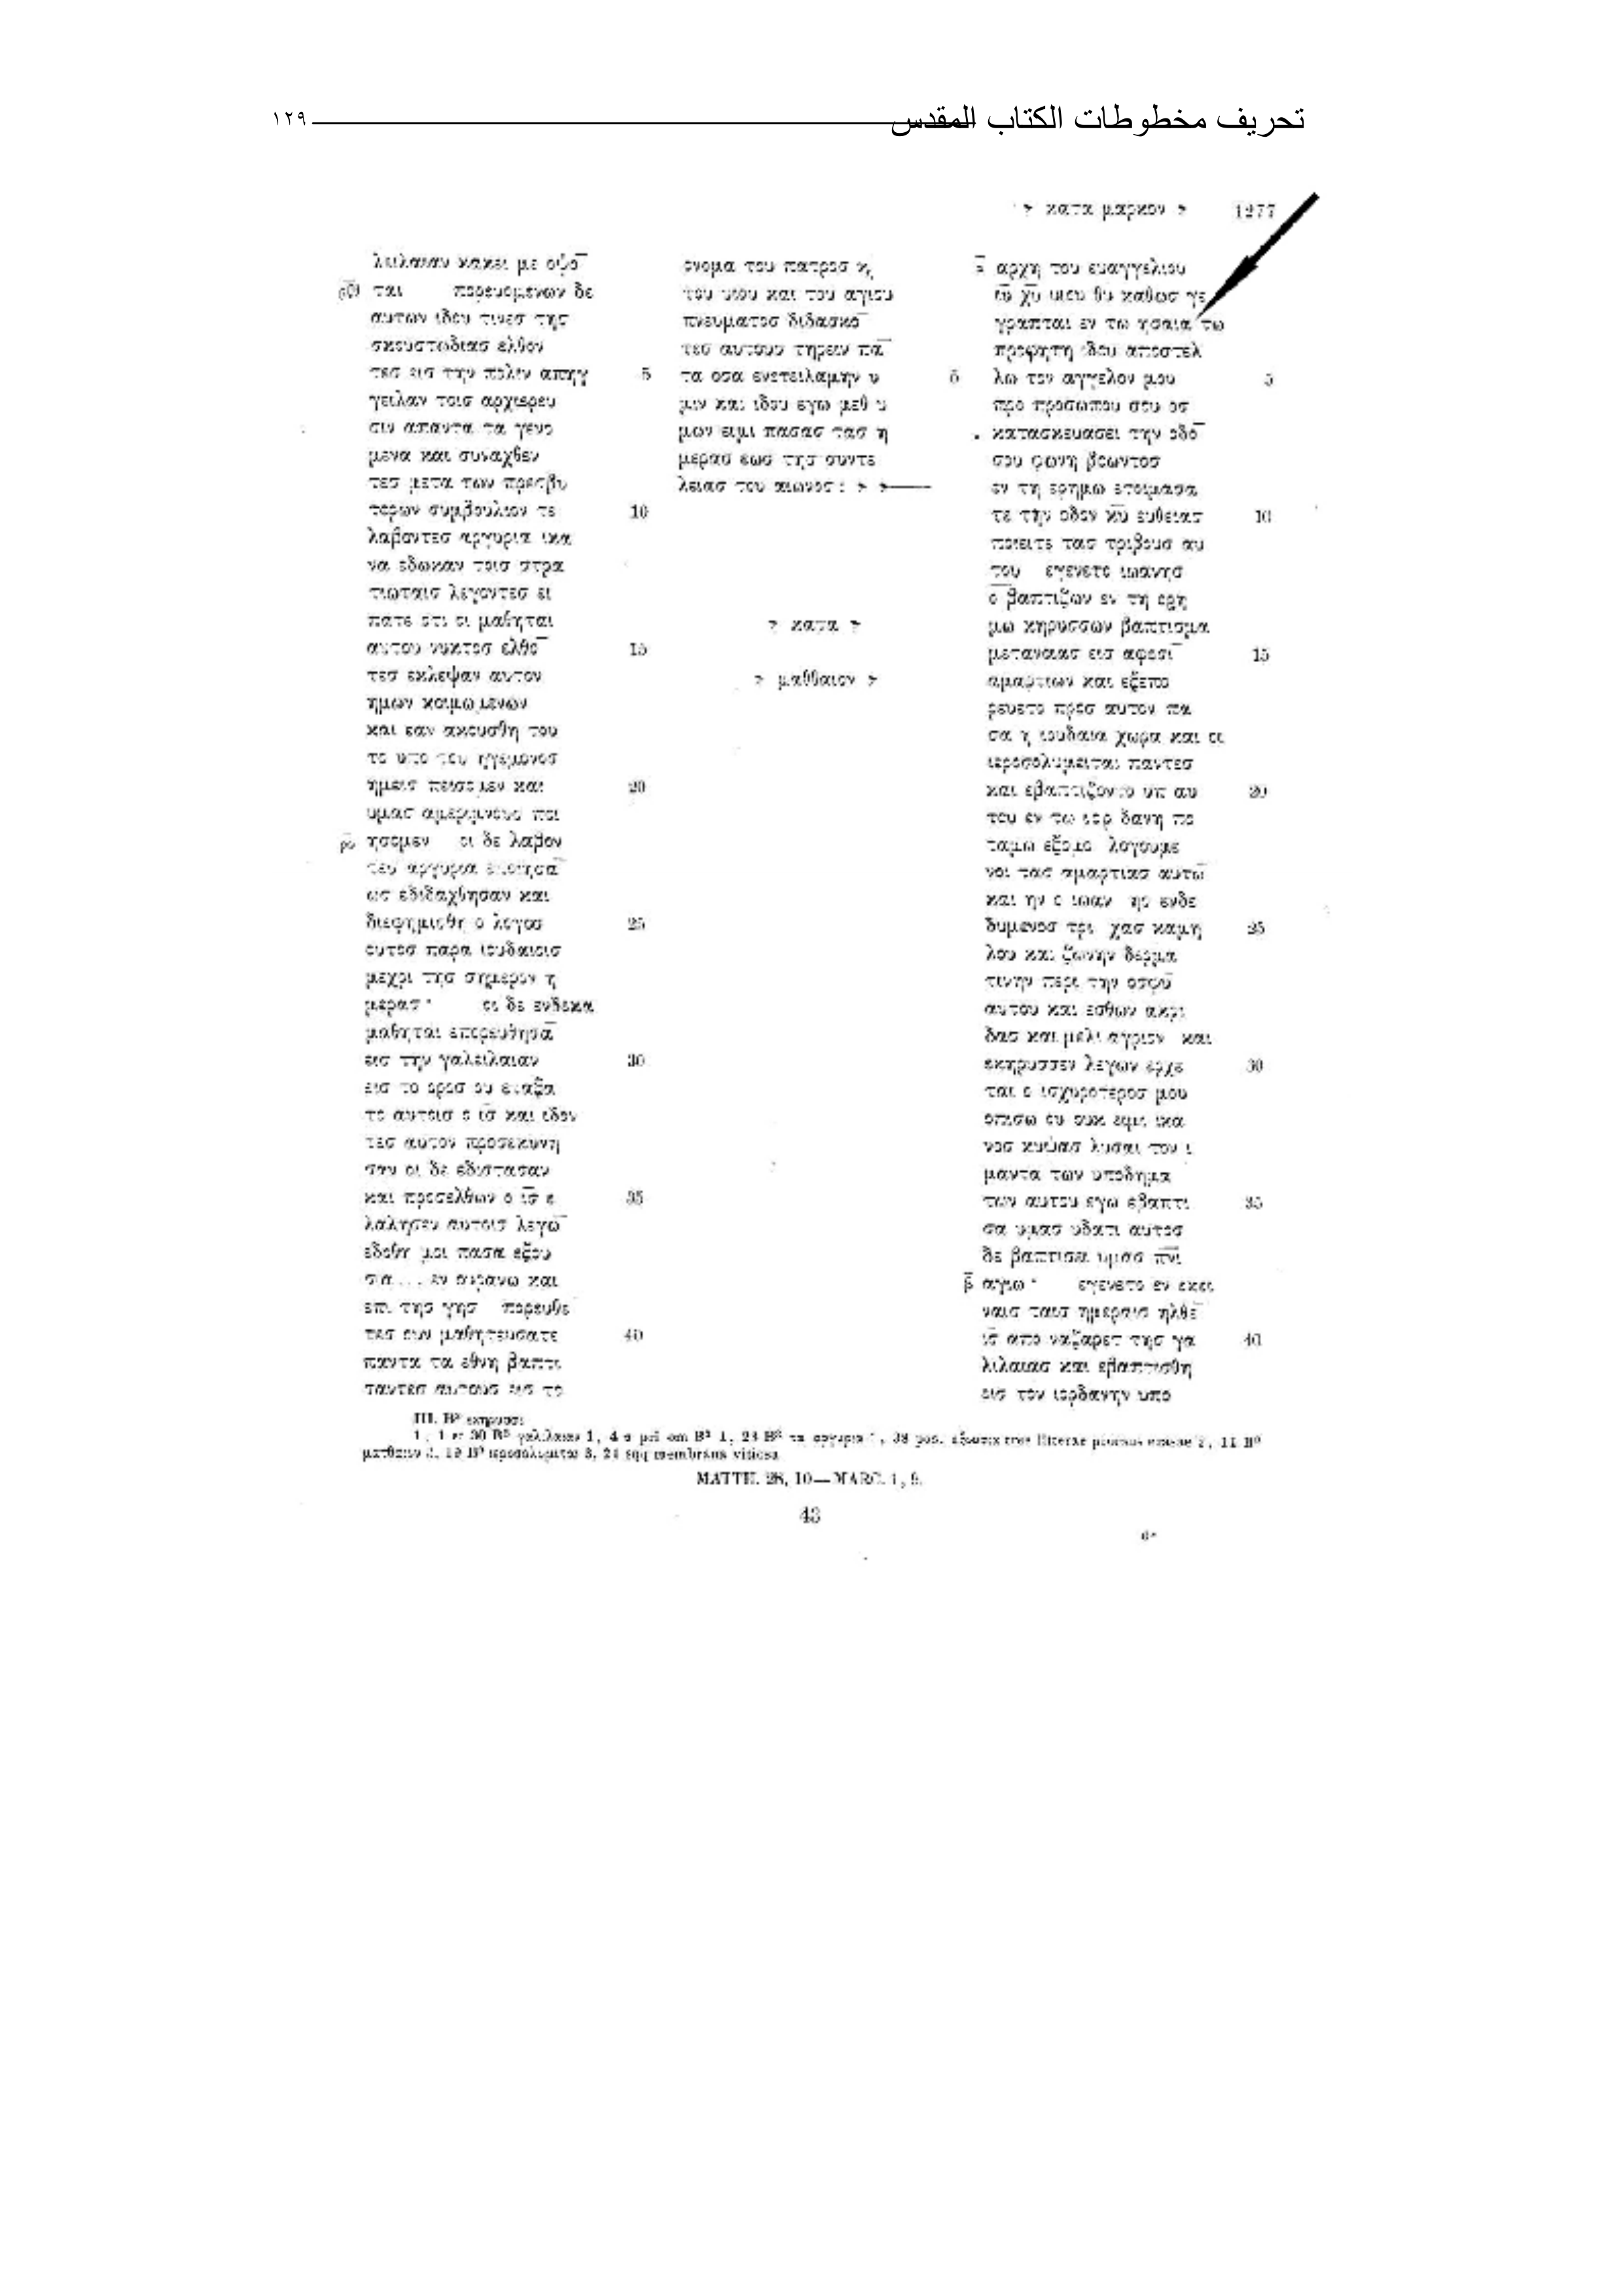 تحريف مخطوطات الكتاب المقدس ١٢٩
κατα μαρκον 1277
λειλαιαν κακει με οψο̅
ται πορευομενων δε
αυτων ιδου τινεσ τησ
σκουστωδιασ ελθον
τεσ εισ την πολιν απηγ 5
γειλαν τοισ αρχιερευ
σιν απαντα τα γενο
μενα και συναχθεν
τεσ μετα των πρεσβυ
τερων συμβουλιον τε 10
λαβοντεσ αργυρια ικα
να εδωκαν τοισ στρα
τιωταισ λεγοντεσ ει
πατε οτι οι μαθηται
αυτου νυκτοσ ελθο̅ 15
τεσ εκλεψαν αυτον
ημων κοιμωμενων
και εαν ακουσθη του
το υπο του ηγεμονοσ
ημεισ πεισομεν και 20
υμασ αμεριμνουσ ποι
ησομεν οι δε λαβον
τεσ αργυρια εποιησα̅
ωσ εδιδαχθησαν και
διεφημισθη ο λογοσ 25
ουτοσ παρα ιουδαιοισ
μεχρι τησ σημερον η
μερασ · οι δε ενδεκα
μαθηται επορευθησα̅
εισ την γαλειλαιαν 30
εισ το οροσ ου εταξα
το αυτοισ ο ι̅σ̅ και ιδον
τεσ αυτον προσεκυνη
σαν οι δε εδιστασαν
και προσελθων ο ι̅σ̅ ε 35
λαλησεν αυτοισ λεγω̅
εδοθη μοι πασα εξου
σια... εν ουρανω και
επι τησ γησ πορευθε̅
τεσ ουν μαθητευσατε 40
παντα τα εθνη βαπτι
σαντεσ αυτουσ εισ το
ονομα του πατροσ κ,
του υιου και του αγιου
πνευματοσ διδασκο̅
τεσ αυτουσ τηρειν πα̅
τα οσα ενετειλαμην υ 5
μιν και ιδου εγω μεθ υ
μων ειμι πασασ τασ η
μερασ εωσ τησ συντε
λειασ του αιωνοσ :
κατα
μαθθαιον
α̅ αρχη του ευαγγελιου
ι̅υ̅ χ̅υ̅ υιου θυ καθωσ γε
γραπται εν τω ησαια τω
προφητη ιδου αποστελ
λω τον αγγελον μου 5
προ προσωπου σου οσ
κατασκευασει την οδο̅
σου φωνη βοωντοσ
εν τη ερημω ετοιμασα
τε την οδον κ̅υ̅ ευθειασ 10
ποιειτε τασ τριβουσ αυ
του εγενετο ιωανησ
ο βαπτιζων εν τη ερη
μω κηρυσσων βαπτισμα
μετανοιασ εισ αφεσι̅ 15
αμαρτιων και εξεπο
ρευετο προσ αυτον πα
σα η ιουδαια χωρα και οι
ιεροσολυμειται παντεσ
και εβαπτιζοντο υπ αυ 20
του εν τω ιορ δανη πο
ταμω εξομο λογουμε
νοι τασ αμαρτιασ αυτω̅
και ην ο ιωαν ησ ενδε
δυμενοσ τρι χασ καμη 25
λου και ζωνην δερμα
τινην περι την οσφυ̅
αυτου και εσθων ακρι
δασ και μελι αγριον και
εκηρυσσεν λεγων ερχε 30
ται ο ισχυροτεροσ μου
οπισω ου ουκ ειμι ικα
νοσ κυψασ λυσαι τον ι
μαντα των υποδημα
των αυτου εγω εβαπτι 35
σα υμασ υδατι αυτοσ
δε βαπτισει υμασ π̅ν̅ι̅
β̅ αγιω · εγενετο εν εκει
ναισ ταισ ημεραισ ηλθε̅
ι̅σ̅ απο ναζαρετ τησ γα 40
λιλαιασ και εβαπτισθη
εισ τον ιορδανην υπο
III. B³ εκηρυσσε
1, 1 et 30 B³ γαλιλαιαν 1, 4 σ pri om B³ 1, 23 B² τα αργυρια 1, 38 pos. εξουσια tres litterae 2, 11 B³
ματθαιον 3, 19 B³ ιεροσολυμιται 3, 21 sqq membrana vitiosa
MATTH. 28, 10—MARC. 1, 9.
43
6*